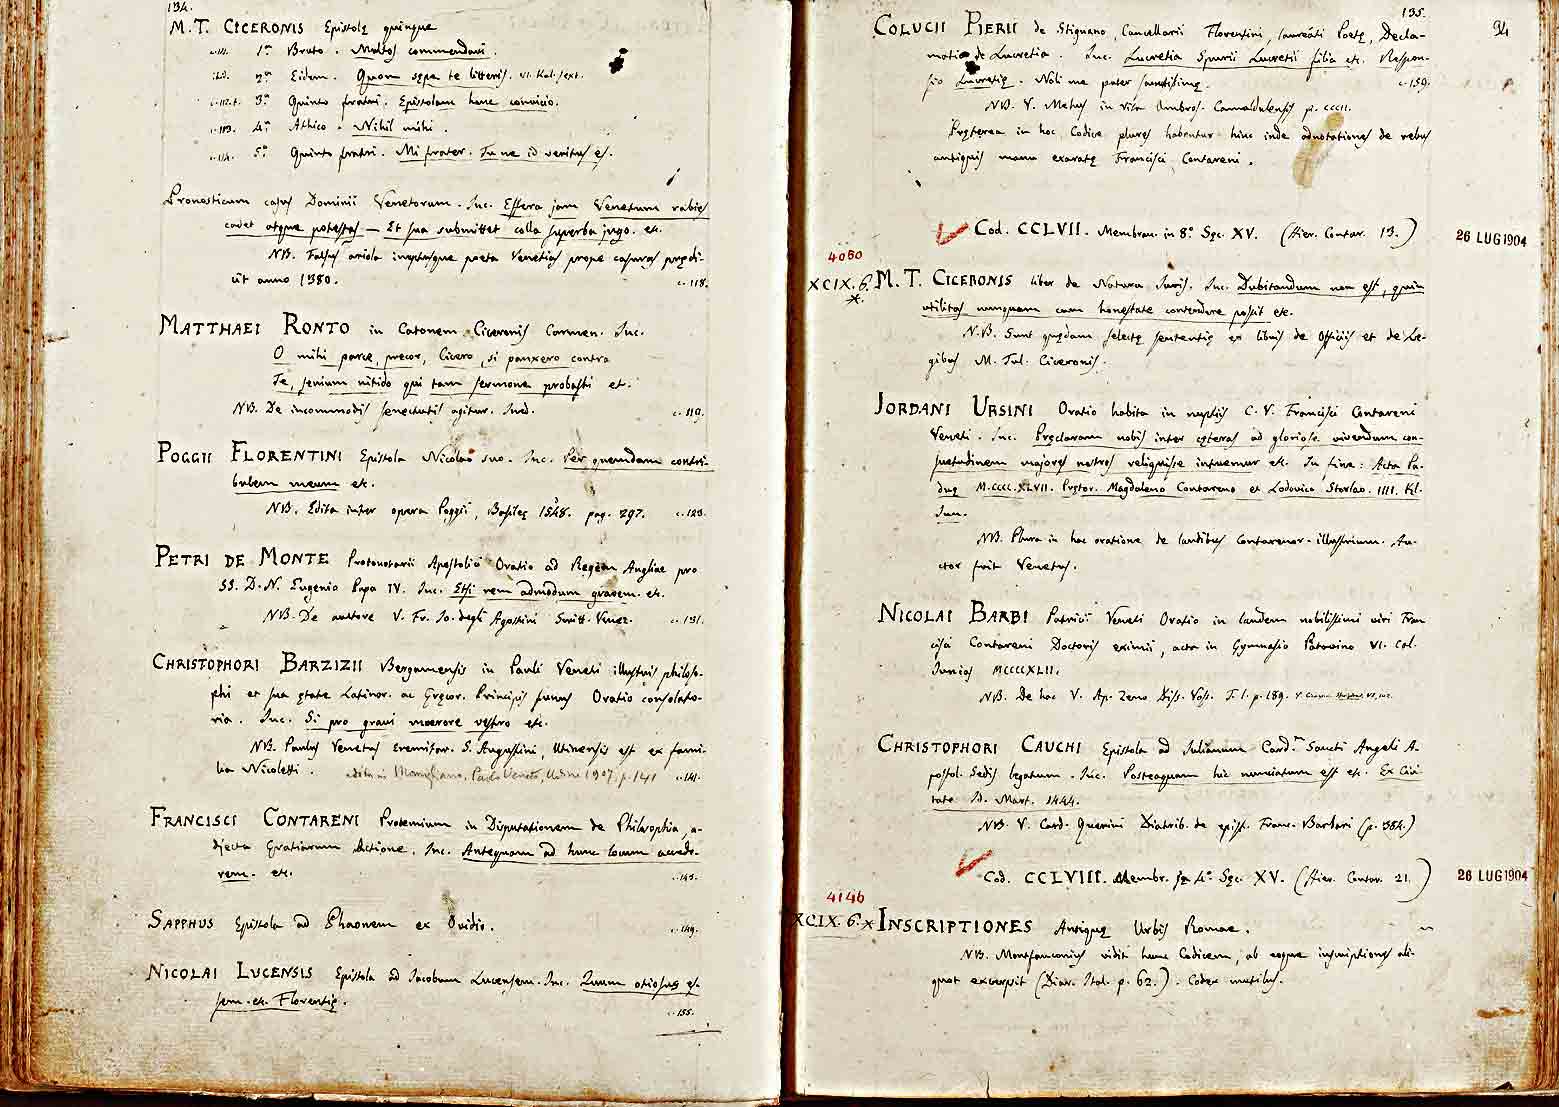 134.
M. T. CICERONIS Epistolę quinque
c. 111. 1.ª Bruto. Multos commendavi.
ibid. 2.ª Eidem. Quom sępe te litteris. VI. Kal. sext.
c. 112. t. 3.ª Quinto fratri. Epistolam hanc convicio.
c. 113. 4.ª Athico. Nihil mihi.
c. 114. 5.ª Quinto fratri. Mi frater. Tu ne id veritus es.
Pronosticum casus Dominii Venetorum. Inc. Effera jam Venetum rabies
cadet atque potestas — Et sua submittet colla superba jugo. etc.
NB. Falsus ariola ineptusque poeta Venetias prope casuras prędi-
xit anno 1380. c. 118.
MATTHAEI RONTO in Catonem Ciceronis Carmen. Inc.
O mihi parce, precor, Cicero, si panxero contra
Te, senium nitido qui tam sermone probasti etc.
NB. De incommodis senectutis agitur. Ined. c. 119.
POGGII FLORENTINI Epistola Nicolao suo. Inc. Per quemdam contri-
bulem meum etc.
NB. Edita inter opera Poggii, Basileę 1538. pag. 297. c. 123.
PETRI DE MONTE Protonotarii Apostolici Oratio ad Regem Angliae pro
SS. D. N. Eugenio Papa IV. Inc. Etsi rem admodum gravem. etc.
NB. De auctore V. Fr. Jo. degli Agostini Scritt. Venez. c. 131.
CHRISTOPHORI BARZIZII Bergamensis in Pauli Veneti illustris philoso-
phi et sua ętate Latinor. ac Gręcor. Principis funus Oratio consolato-
ria. Inc. Si pro gravi moerore vestro etc.
NB. Paulus Venetus eremitar. S. Augustini, Utinensis est ex fami-
lia Nicoletti. edita in Momigliano, Paolo Veneto, Udine 1907, p. 141 c. 141.
FRANCISCI CONTARENI Proemium in Disputationem de Philosophia, a-
djecta Gratiarum Actione. Inc. Antequam ad hunc locum accede-
rem. etc. c. 145.
SAPPHUS Epistola ad Phaonem ex Ovidio. c. 149.
NICOLAI LUCENSIS Epistola ad Jacobum Lucensem. Inc. Quum otiosus es-
sem. etc. Florentię.
c. 155.
135.
94
COLUCII PIERII de Stignano, Cancellarii Florentini, laureati Poetę, Decla-
matio de Lucretia. Inc. Lucretia Spurii Lucretii filia etc. Respon-
sio Lucretię. Noli me pater sanctissime. c. 159.
NB. V. Mehus in vita Ambros. Camaldulensis p. CCCII.
Pręterea in hoc Codice plures habentur hinc inde adnotationes de rebus
antiquis manu exaratę Francisci Contareni.
Cod. CCLVII. Membran. in 8.º Sęc. XV. (Hier. Contar. 13.)
26 LUG 1904
4080
XCIX. 6. M. T. CICERONIS liber de Natura Juris. Inc. Dubitandum non est, quin
*. utilitas nunquam cum honestate contendere possit etc.
N.B. Sunt quędam selectę sententię ex libris de Officiis et de Le-
gibus M. Tul. Ciceronis.
JORDANI URSINI Oratio habita in nuptiis C. V. Francisci Contareni
Veneti. Inc. Pręclaram nobis inter cęteras ad gloriose vivendum con-
suetudinem majores nostros reliquisse intuemur etc. In fine: Acta Pa-
duę M.CCCC.XLVII. Pretor. Magdaleno Contareno et Lodovico Storlao. IIII. Kl.
Jun.
NB. Plura in hac oratione de laudibus Contarenor. illustrium. Au-
ctor fuit Venetus.
NICOLAI BARBI Patricii Veneti Oratio in laudem nobilissimi viri Fran-
cisci Contareni Doctoris eximii, acta in Gymnasio Patavino VI. Cal.
Junias MCCCCXLII.
NB. De hac V. Ap. Zeno Diss. Voss. T. I. p. 189.
CHRISTOPHORI CAUCHI Epistola ad Julianum Card.m Sancti Angeli A-
postol. Sedis legatum. Inc. Posteaquam huc nunciatum est etc. Ex Civi-
tate D. Mart. 1444.
NB. V. Card. Querini Diatrib. de epist. Franc. Barbari (p. 384.)
Cod. CCLVIII. Membr. in 4.º Sęc. XV. (Hier. Contar. 21.)
26 LUG 1904
4146
XCIX. 6. x INSCRIPTIONES Antiquę Urbis Romae.
NB. Montfauconius vidit hunc Codicem, ab eoque inscriptiones ali-
quot excerpsit (Diar. Ital. p. 62.). Codex mutilus.